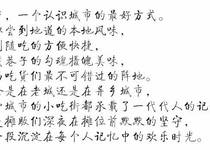 ，一个认识城市的最好方式。
尝到地道的本地风味，
到随吃的方便快捷，
巷子的勾魂摄魄美味，
吃货们最不可错过的阵地。
是在老城还是在异乡，
城市的小吃街都承载了一代代人的记
摊贩们深夜在摊位前默默的坚守，
段沉淀在每个人记忆中的欢乐时光。